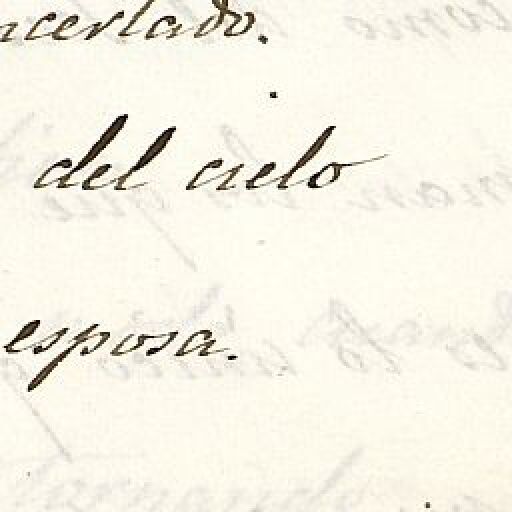 ncertado.
del cielo
esposa.